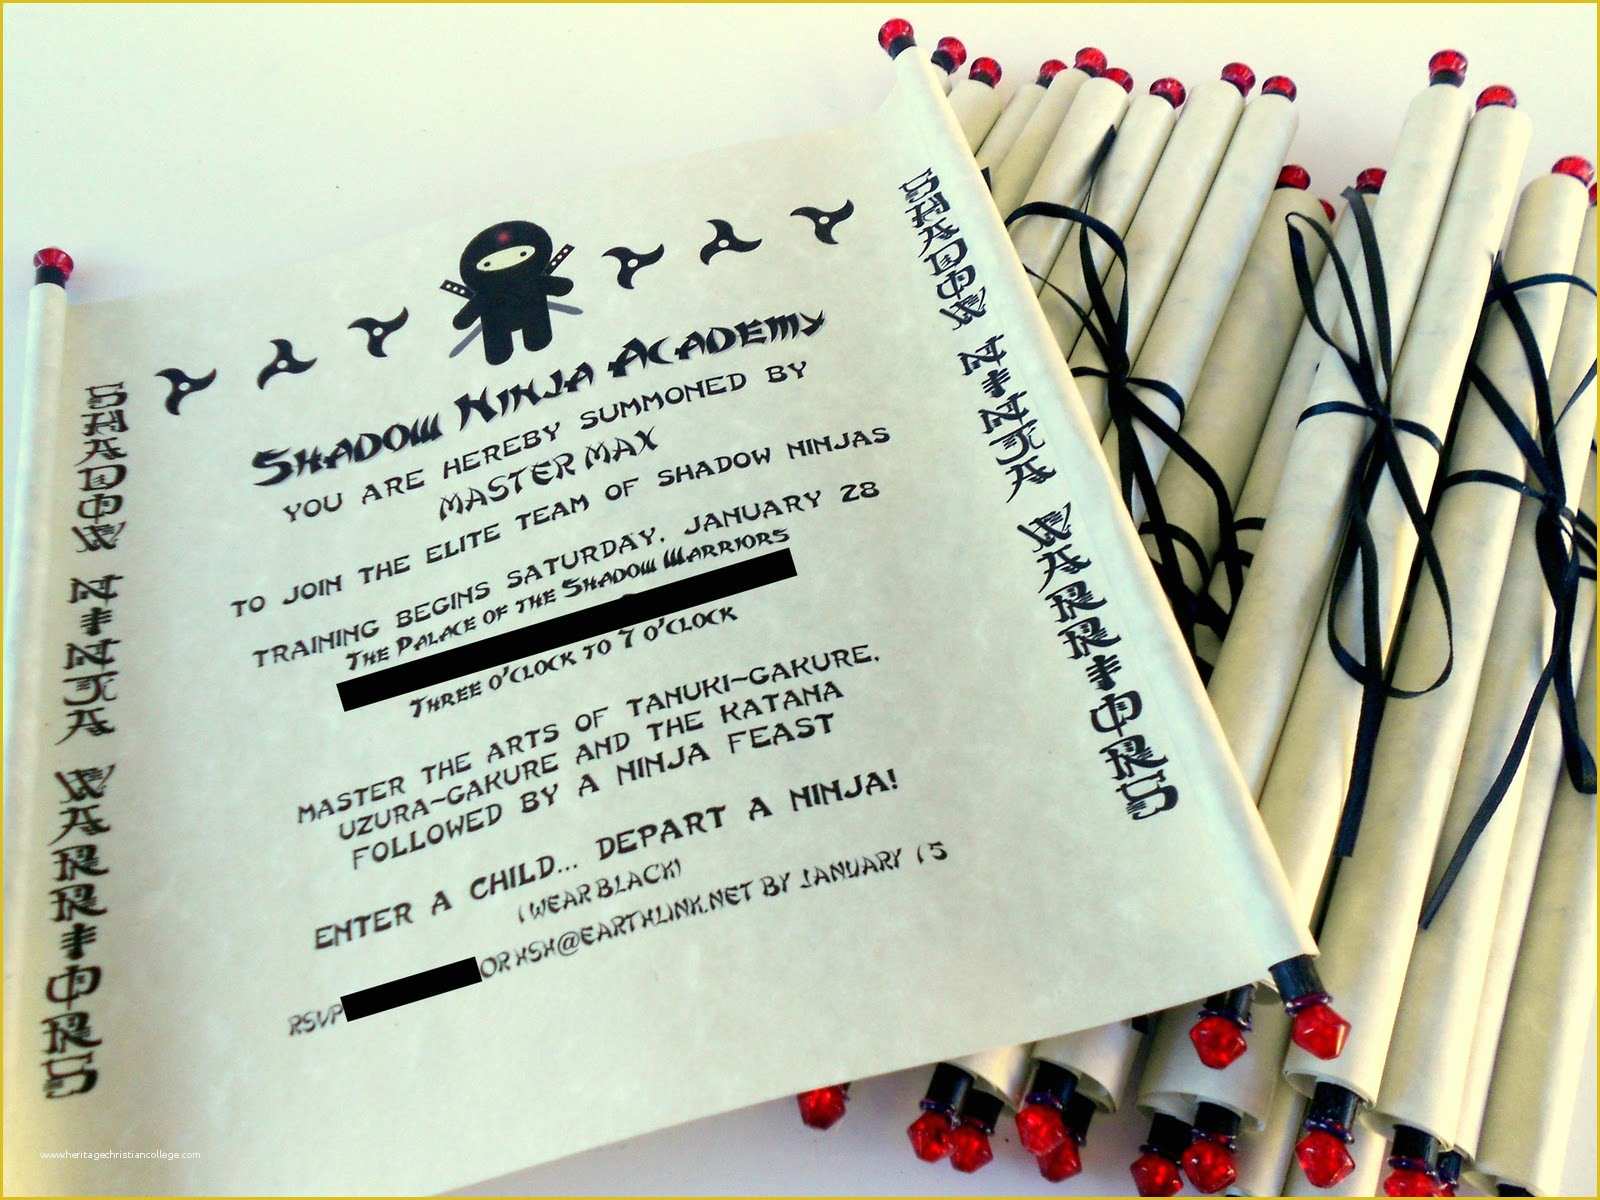 SHADOW NINJA WARRIORS
SHADOW NINJA ACADEMY
YOU ARE HEREBY SUMMONED BY
MASTER MAX
TO JOIN THE ELITE TEAM OF SHADOW NINJAS
TRAINING BEGINS SATURDAY, JANUARY 28
THE PALACE OF THE SHADOW WARRIORS
THREE O'CLOCK TO 7 O'CLOCK
MASTER THE ARTS OF TANUKI~GAKURE,
UZURA~GAKURE AND THE KATANA
FOLLOWED BY A NINJA FEAST
ENTER A CHILD... DEPART A NINJA!
(WEAR BLACK)
RSVP OR HSH@EARTHLINK.NET BY JANUARY 15
SHADOW NINJA WARRIORS
www.heritagechristiancollege.com